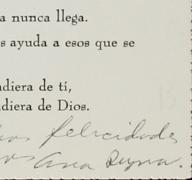 a nunca llega.
s ayuda a esos que se
diera de tí,
diera de Dios.
felicidades
Ana